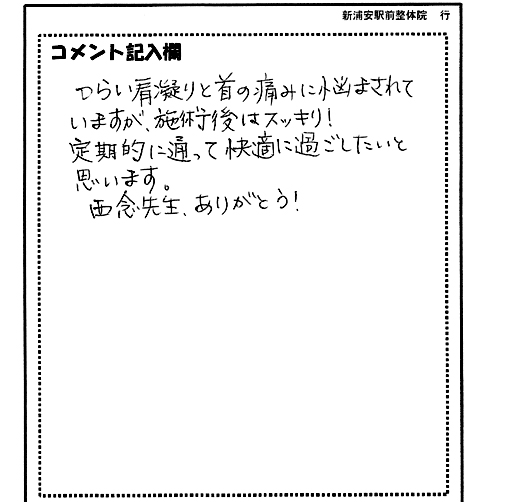 新浦安駅前整体院 行
コメント記入欄
つらい肩凝りと首の痛みに悩まされて
いますが、施術後はスッキリ!
定期的に通って快適に過ごしたいと
思います。
西念先生、ありがとう!